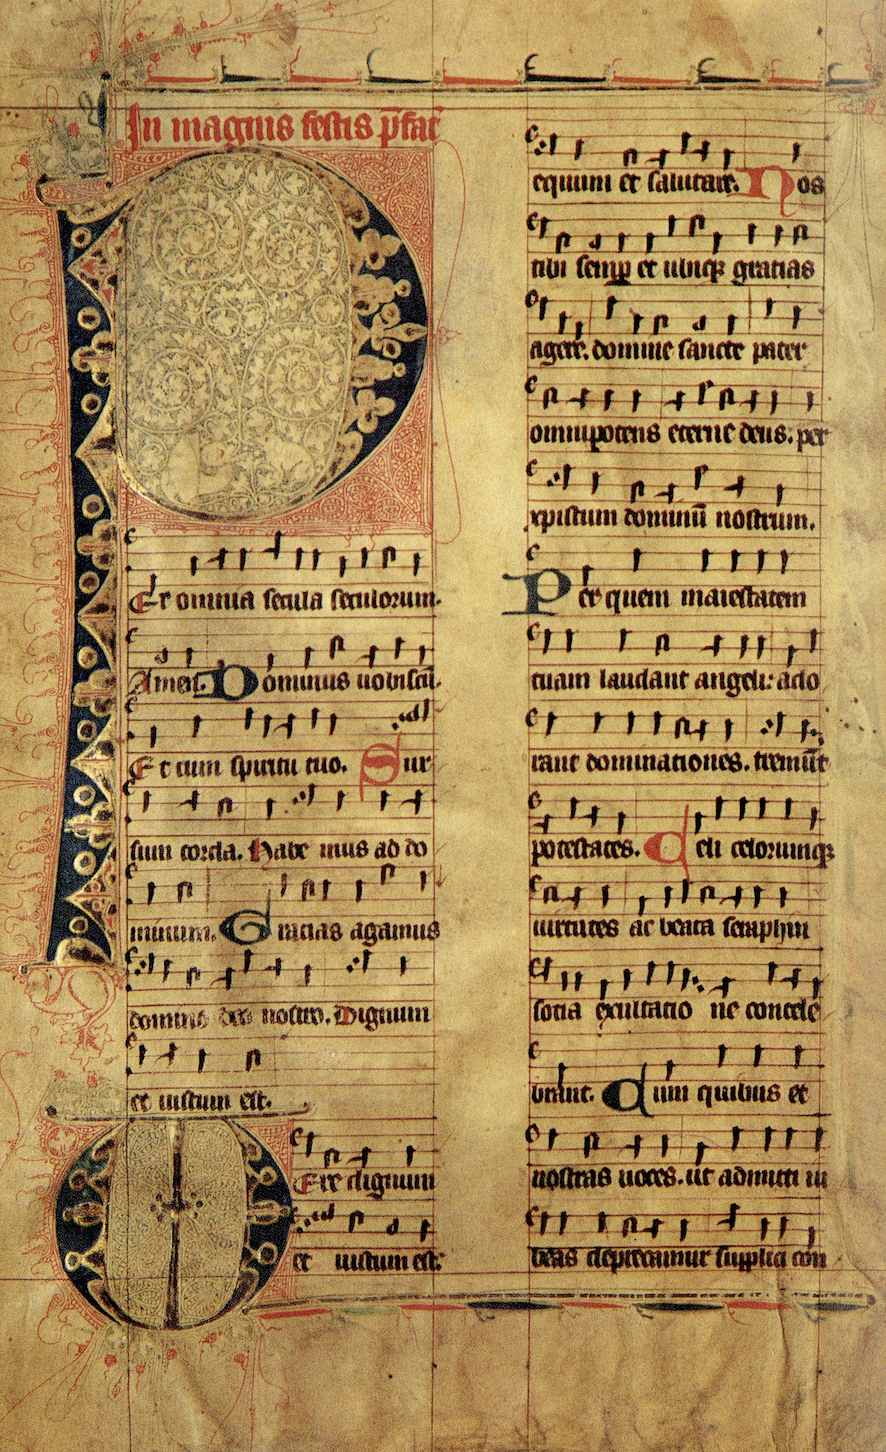 In magnis festis p̄fat̄
PEr omnia secula seculorum.
Amen. Dominus uobiscū.
Et cum spiritu tuo. Sur
sum corda. Habe mus ad do
minum. Gracias agamus
domino deo nostro. Dignum
et iustum est.
VEre dignum
et iustum est
equum et salutare. Nos
tibi semp et ubiqꝫ gratias
agere. domine sancte pater
omnipotens eterne deus. per
xpistum dominū nostrum.
Per quem maiestatem
tuam laudant angeli: ado
rant dominationes. tremūt
potestates. Celi celorumqꝫ
uirtutes ac beata seraphin
socia exultatio ne concele
brant. Cum quibus et
nostras uoces. ut admitti iu
beas deprecamur supplici con